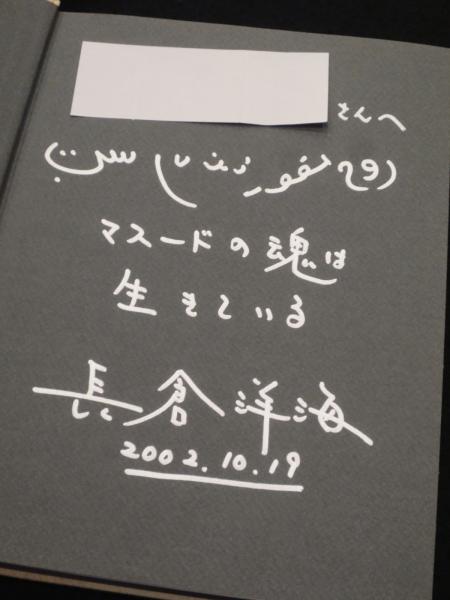 さんへ
マスードの魂は
生きている
長倉洋海
2002.10.19